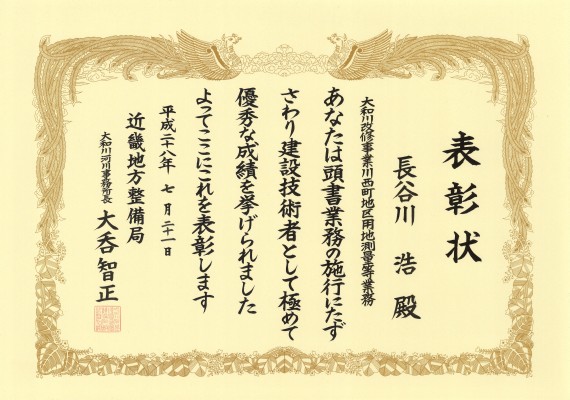 表彰状
長谷川 浩 殿
大和川改修事業川西町地区用地測量等業務
あなたは頭書業務の施行にたず
さわり建設技術者として極めて
優秀な成績を挙げられました
よってここにこれを表彰します
平成二十八年 七月二十一日
近畿地方整備局
大和川河川事務所長 大呑智正